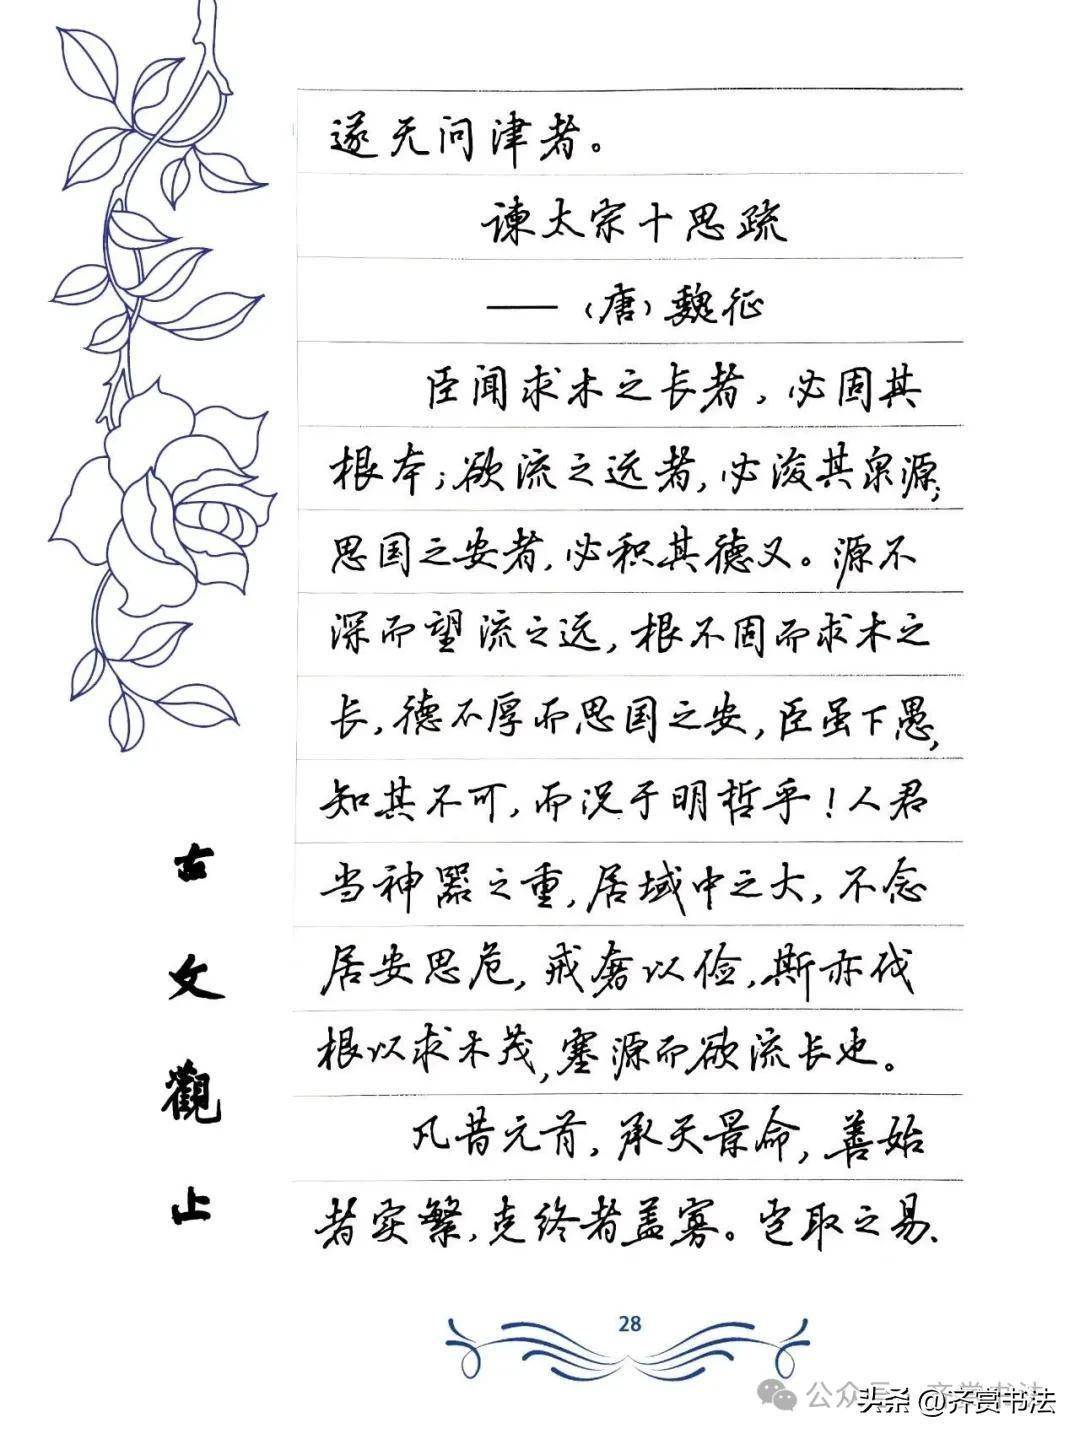 遂无问津者。
谏太宗十思疏
——（唐）魏征
臣闻求木之长者，必固其
根本；欲流之远者，必浚其泉源；
思国之安者，必积其德义。源不
深而望流之远，根不固而求木之
长，德不厚而思国之安，臣虽下愚，
知其不可，而况于明哲乎！人君
当神器之重，居域中之大，不念
居安思危，戒奢以俭，斯亦伐
根以求木茂，塞源而欲流长也。
凡昔元首，承天景命，善始
者实繁，克终者盖寡。岂取之易、
古文觀止
28
公众号 齐赏书法
头条 @齐赏书法